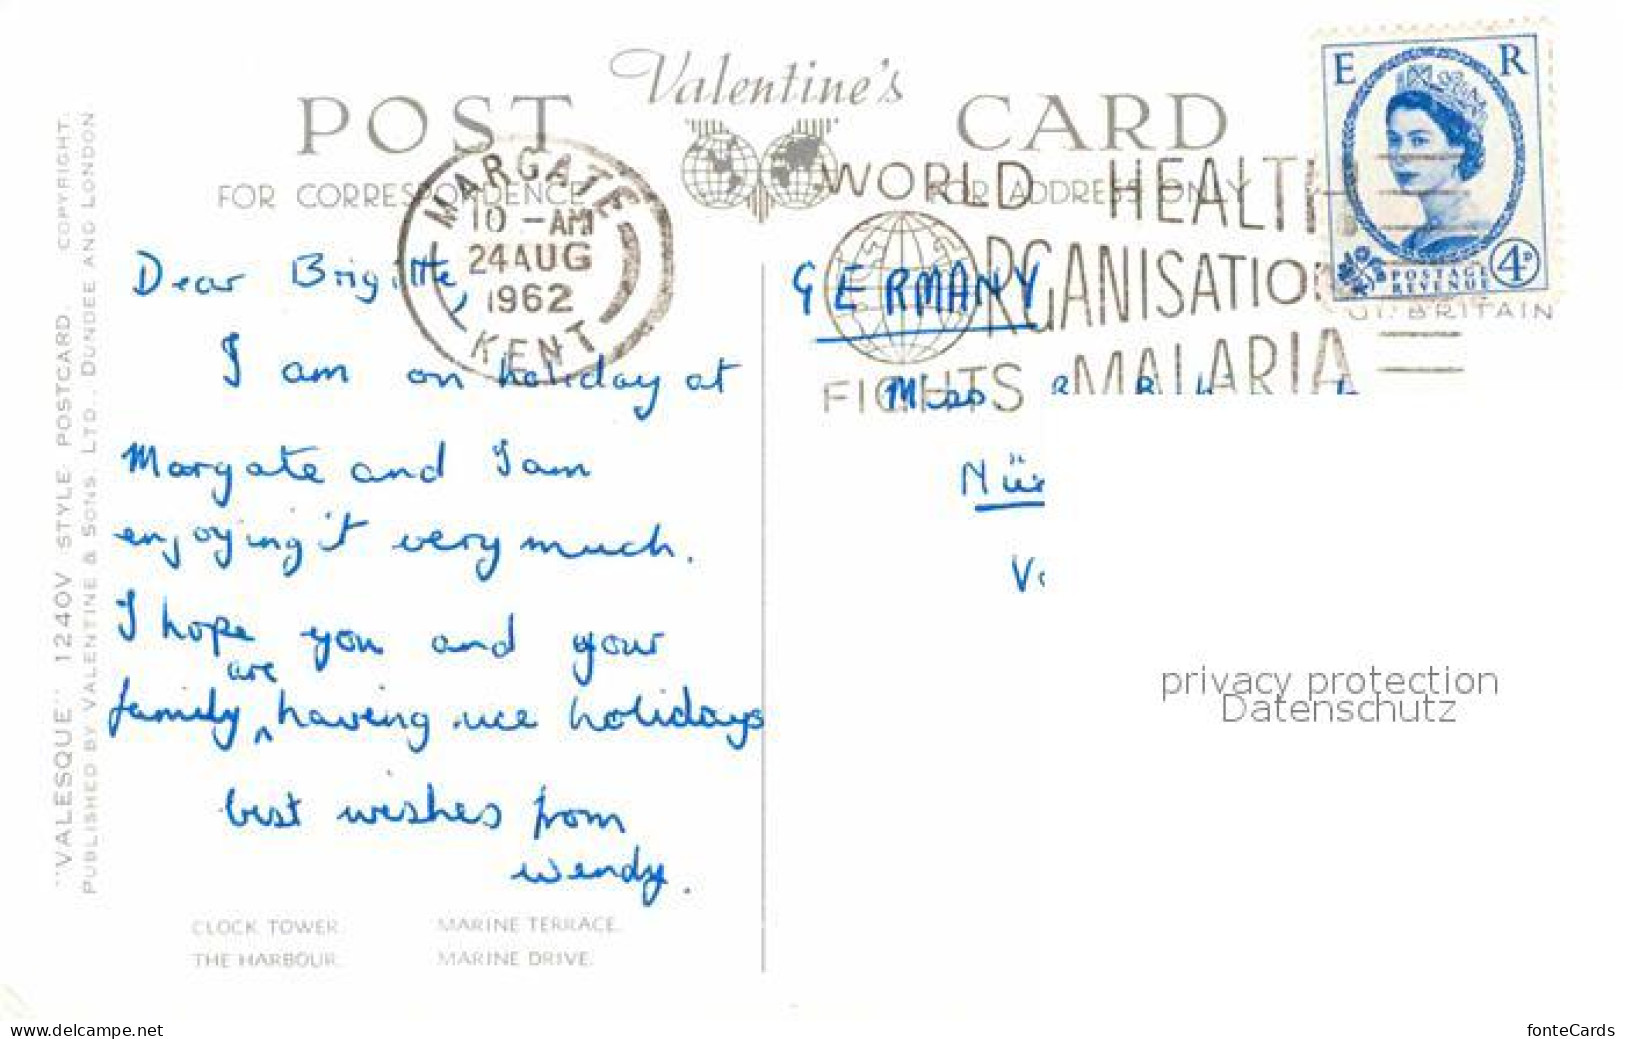 POST Valentine's CARD
FOR CORRESPONDENCE
FOR ADDRESS ONLY
MARGATE
10 -AM
24 AUG
1962
KENT
WORLD HEALTH
ORGANISATION
FIGHTS MALARIA
E R
POSTAGE
REVENUE
4D
BRITAIN
Dear Brigitte,
I am on holiday at
Margate and I am
enjoying it very much.
I hope you and your
family are having nice holidays
best wishes from
Wendy.
GERMANY
Miss.
CLOCK TOWER. MARINE TERRACE.
THE HARBOUR. MARINE DRIVE.
"VALESQUE" 1240V STYLE POSTCARD. COPYRIGHT.
PUBLISHED BY VALENTINE & SONS, LTD., DUNDEE AND LONDON
privacy protection
Datenschutz
www.delcampe.net
fonteCards